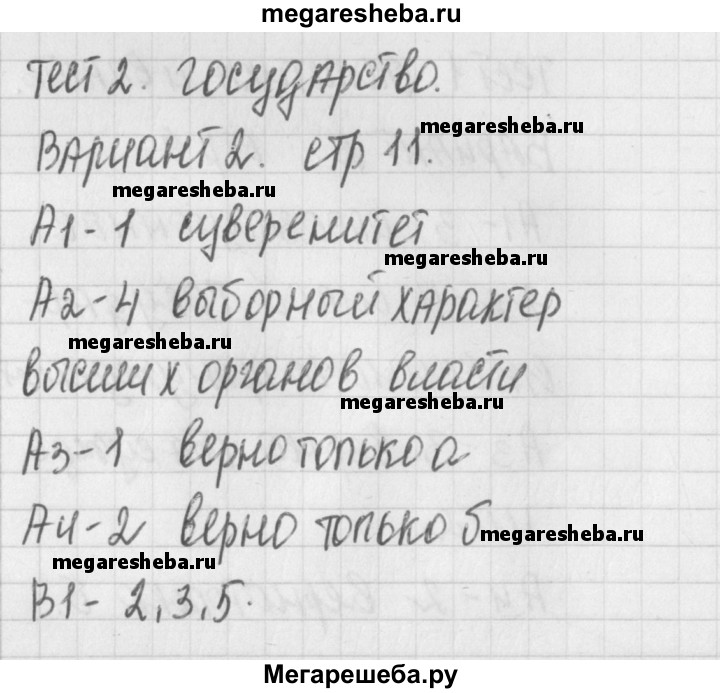 megaresheba.ru
Тест 2. Государство.
Вариант 2. стр 11.
megaresheba.ru
megaresheba.ru
А1-1 суверенитет
megaresheba.ru
А2-4 выборный характер
megaresheba.ru
высших органов власти
megaresheba.ru
А3-1 верно только а
megaresheba.ru
А4-2 верно только б
megaresheba.ru
megaresheba.ru
В1- 2,3,5.
Мегарешеба.ру